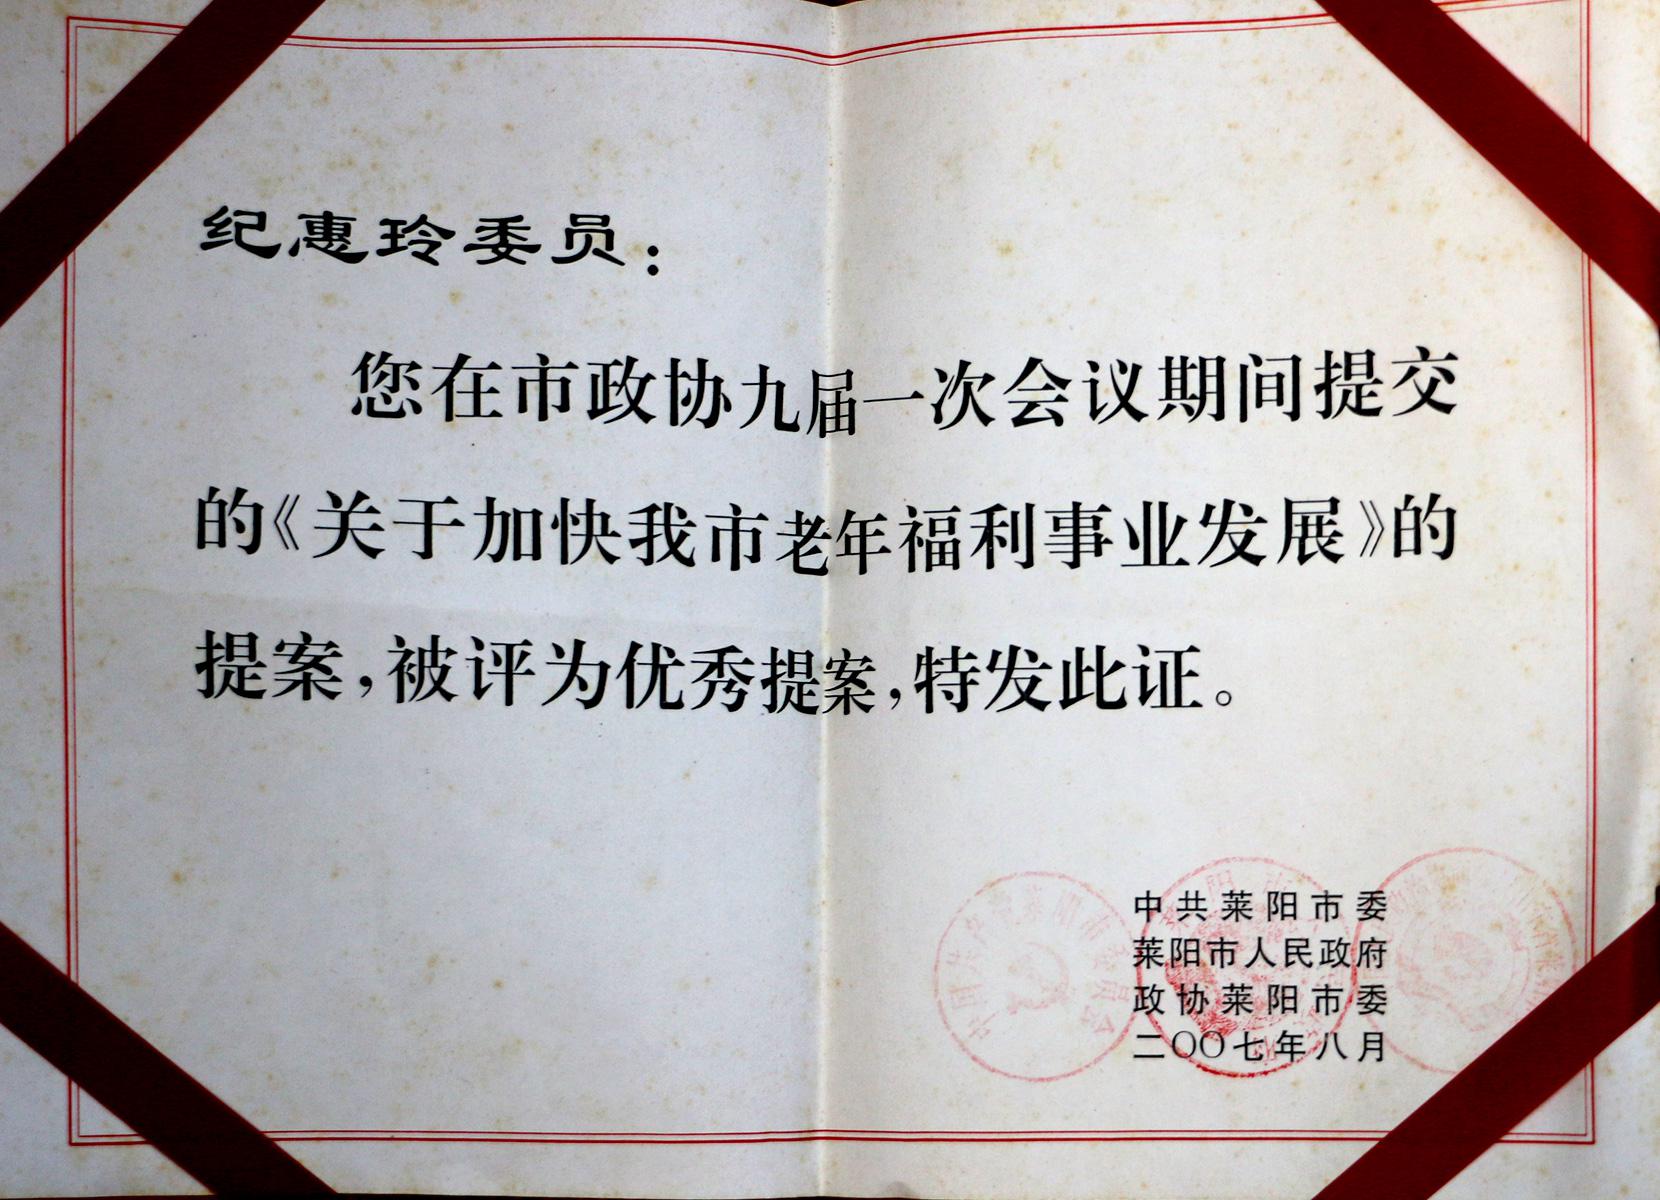 纪惠玲委员：
您在市政协九届一次会议期间提交
的《关于加快我市老年福利事业发展》的
提案，被评为优秀提案，特发此证。
中共莱阳市委
莱阳市人民政府
政协莱阳市委
二〇〇七年八月